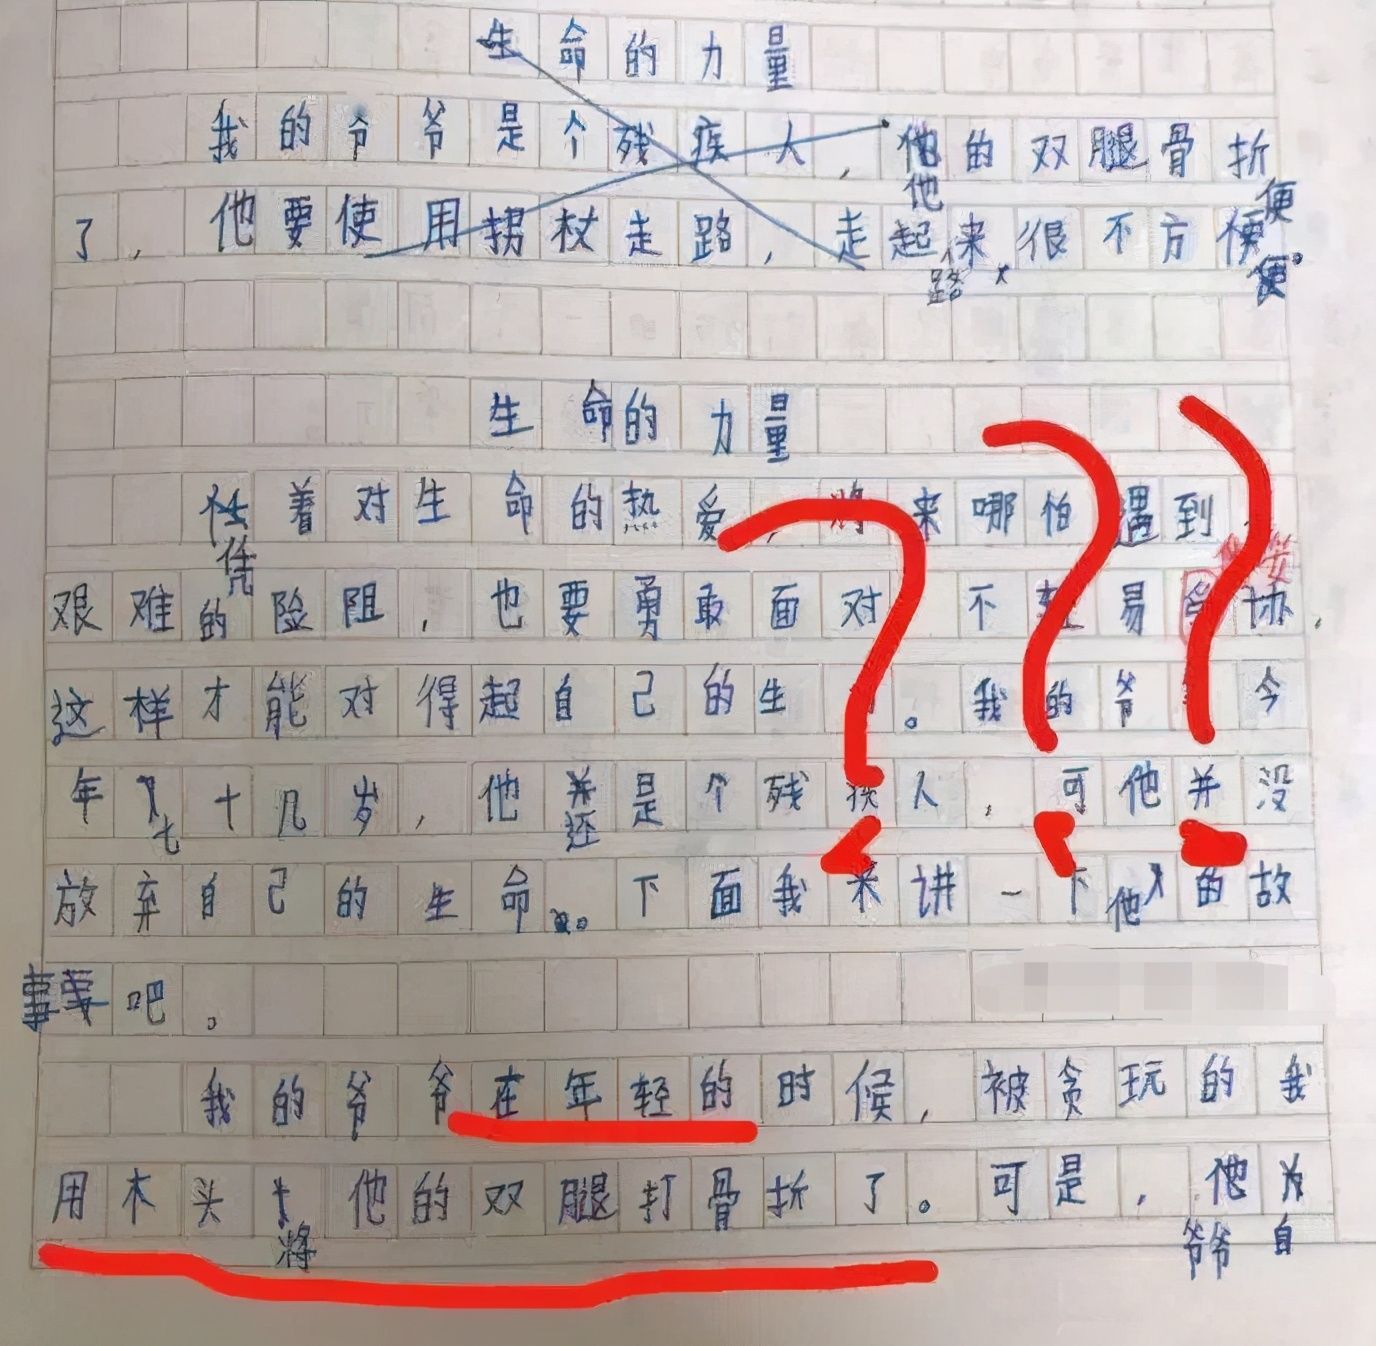 生命的力量
我的爷爷是个残疾人,他的双腿骨折
他
便
了,他要使用拐杖走路,走起来很不方便
路
便。
生命的力量
着对生命的热爱,将来哪怕遇到
凭
艰难的险阻,也要勇敢面对 不轻易妥协,
这样才能对得起自己的生 。我的爷 今
年 十几岁,他 是个残疾人,可他并没
七
还
放弃自己的生命。下面我来讲一下他的故
事吧。
我的爷爷在年轻的时候,被贪玩的我
用木头 他的双腿打骨折了。可是,他
将
爷爷
自